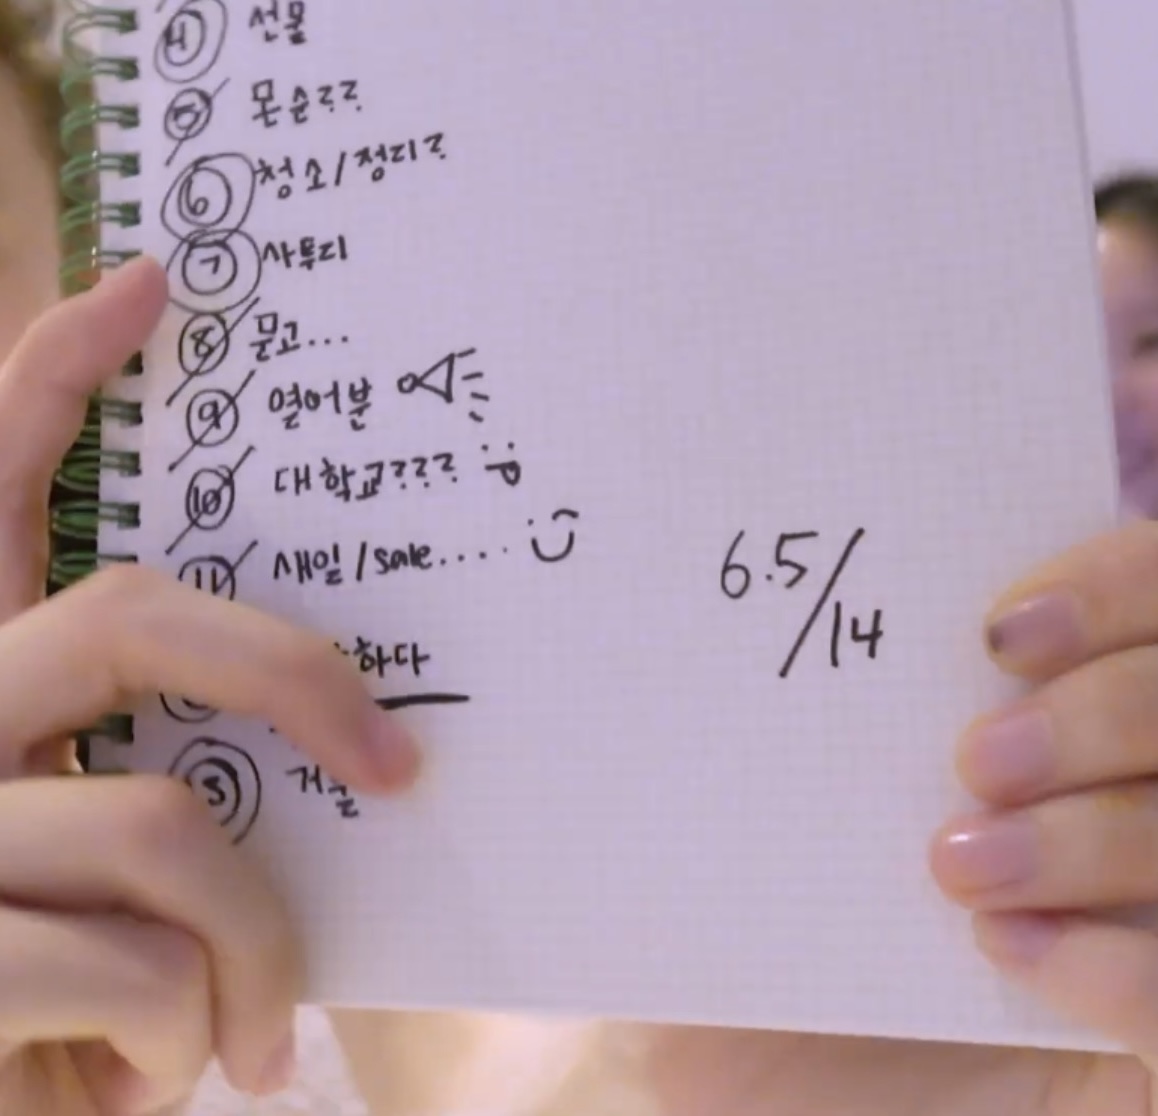 4 선물
5 몬순??
6 청소/정리?
7 사투리
8 묻고...
9 열어분
10 대학교???
11 새일/sale....
하다
거울
6.5/14